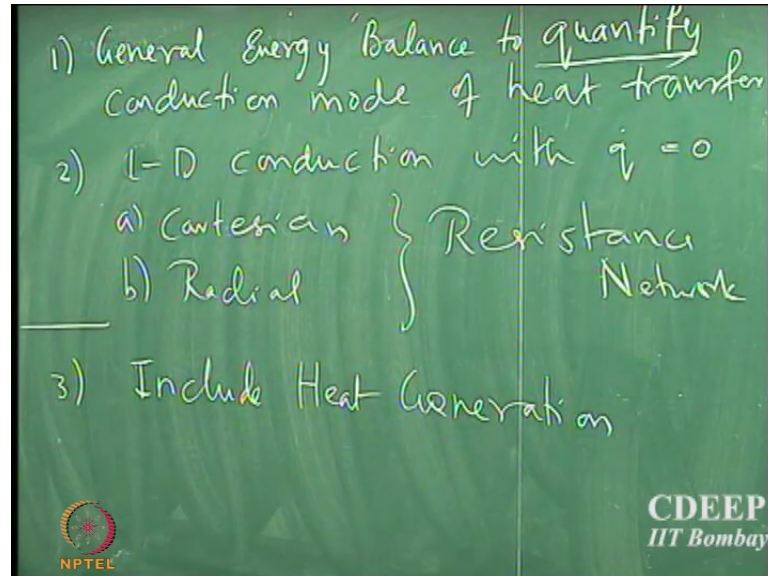 1) General Energy Balance to quantify
conduction mode of heat transfer
2) 1-D conduction with q̇ = 0
a) Cartesian } Resistance
b) Radial Network
3) Include Heat Generation
NPTEL
CDEEP
IIT Bombay